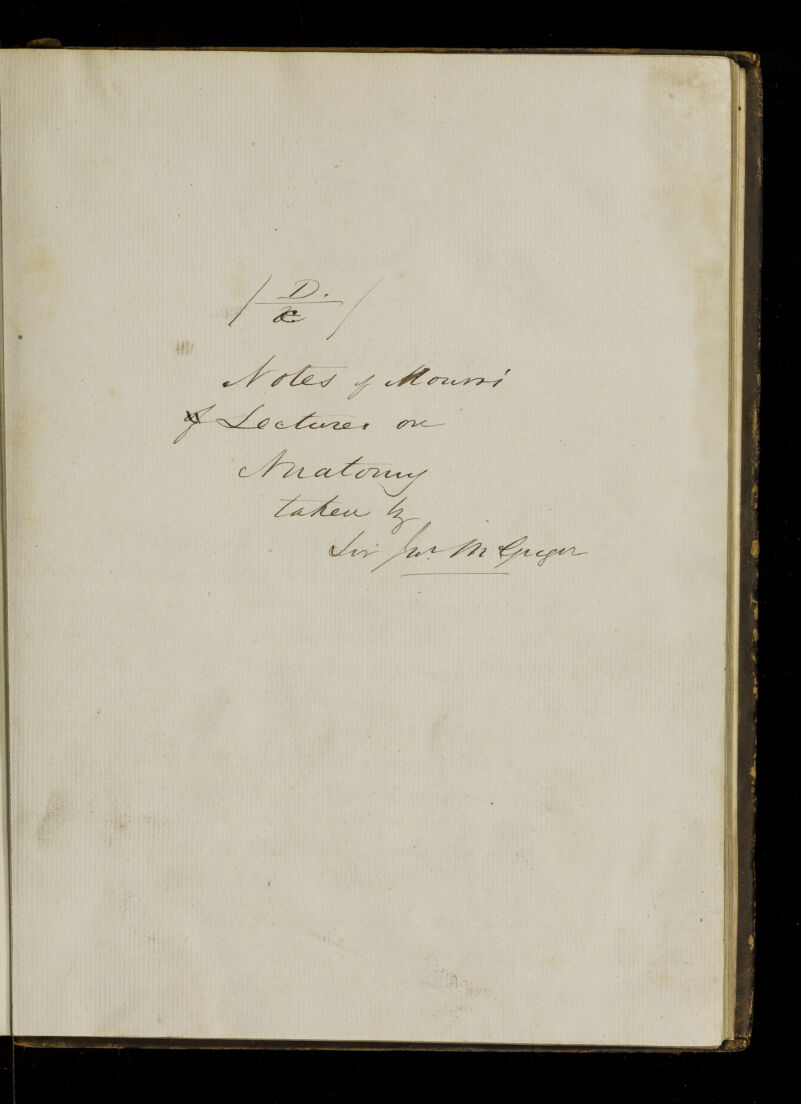 D.
Notes of Monro's
Lectures on
Anatomy
taken by
Sir Jas. McGrigor